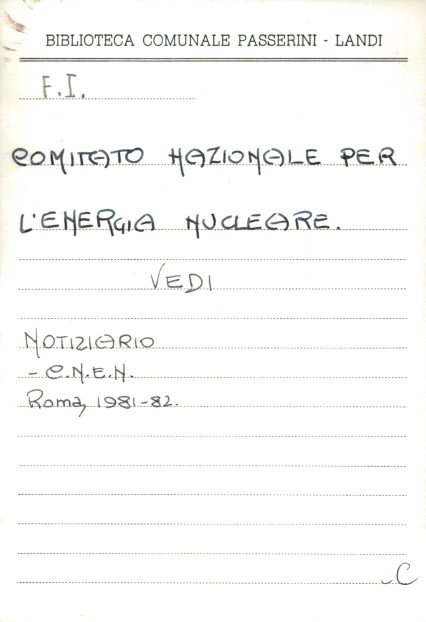 BIBLIOTECA COMUNALE PASSERINI - LANDI
F.I.
COMITATO NAZIONALE PER
L'ENERGIA NUCLEARE.
VEDI
NOTIZIARIO
- C.N.E.N.
Roma, 1981-82.
C